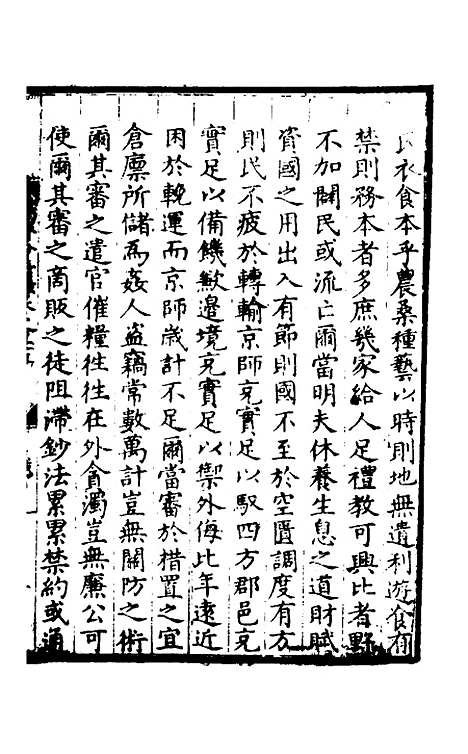 民衣食本乎農桑種藝以時則地無遺利遊食有
禁則務本者多庶幾家給人足禮教可興比者野
不加闢民或流亡爾當明夫休養生息之道財賦
資國之用出入有節則國不至於空匱調度有方
則民不疲於轉輸京師充實足以馭四方郡邑充
實足以備饑歉邊境充實足以禦外侮比年遠近
困於輓運而京師歲計不足爾當審於措置之宜
倉廩所儲為姦人盜竊常數萬計豈無關防之術
爾其審之遣官催糧徃徃在外貪濁豈無廉公可
使爾其審之商販之徒阻滯鈔法累累禁約或通